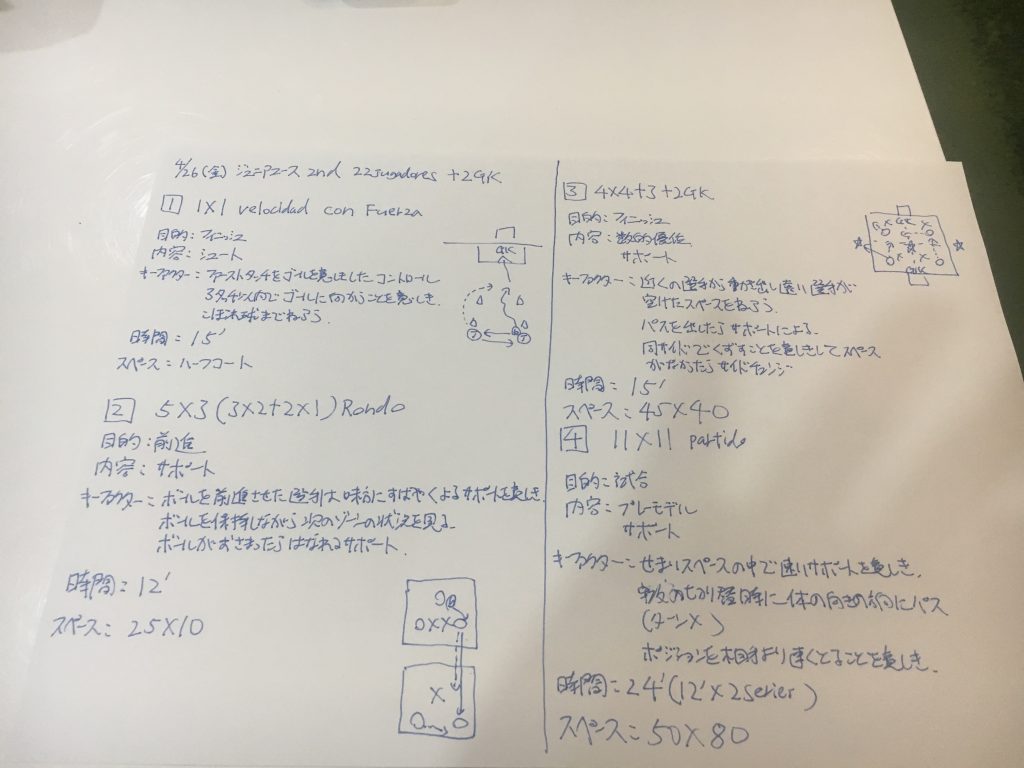 4/26(金) ジュニアユース 2nd 22jugadores +2GK
1 1×1 velocidad con Fuerza
目的:フィニッシュ
内容:シュート
キーファクター:ファーストタッチをゴールを意しきしたコントロール
3タッチ以内でゴールに向かうことを意しき、
こぼれ球までねらう.
時間:15'
スペース:ハーフコート
GK
2 5×3(3×2+2×1)Rondo
目的:前進
内容:サポート
キーファクター:ボールを前進させた選手は味方にすばやくよるサポートを意しき
ボールを保持しながら次のゾーンの状況を見る.
ボールがおさまったらはなれるサポート.
時間:12'
スペース:25×10
3 4×4+3+2GK
目的:フィニッシュ
内容:数的優位
サポート
キーファクター:近くの選手から動き出し遠い選手が
空けたスペースをねらう.
パスを出したらサポートによる.
同サイドでくずすことを意しきしてスペース
がなかったらサイドチェンジ
時間:15'
スペース:45×40
GK
GK
4 11×11 partido
目的:試合
内容:プレーモデル
サポート
キーファクター:せまいスペースの中で速いサポートを意しき.
体の向きの方向にパス
(ターン×)
ポジションを相手より速くとることを意しき.
時間:24'(12'×2serier)
スペース:50×80